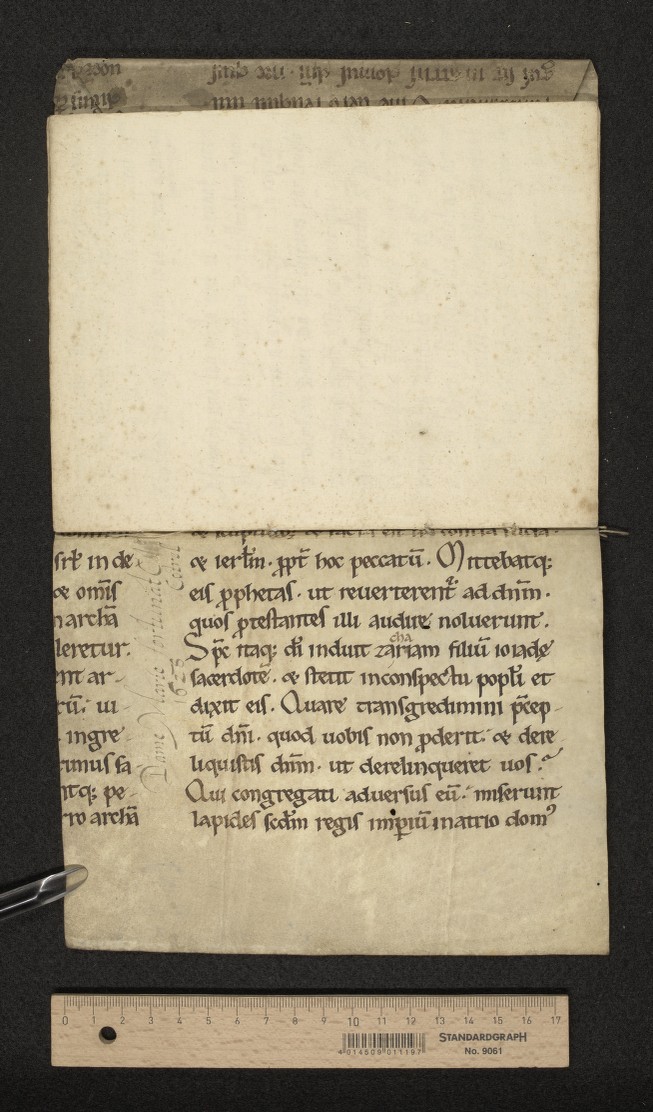 et ierłm · ꝓpt̄ hoc peccatū · Mittebatq;
eis ꝓphetas · ut reuerterent᷑ ad dn̄m ·
quos ꝓtestantes illi audire noluerunt .
Sp̄c itaq; dī induit zariam filiū ioiadę
cha
sacerdotē · et stetit inconspectu popłi et
dixit eis . Quare transgredimini p̄cep-
tū dn̄i · quod uobis non ꝓderit · et dere
liquistis dn̄m · ut derelinqueret uos .
Qui congregati aduersus eū · miserunt
lapides scd̄m regis imꝑiū inatrio dom᷒
srł in de
et om̄is
n archā
leretur .
ent ar-
tū · ui-
. ingre-
rimus sa-
ntq; pe-
rro archā
Dame Marie fortunate
1633
0 1 2 3 4 5 6 7 8 9 10 11 12 13 14 15 16 17
4 014509 011197
STANDARDGRAPH
No. 9061